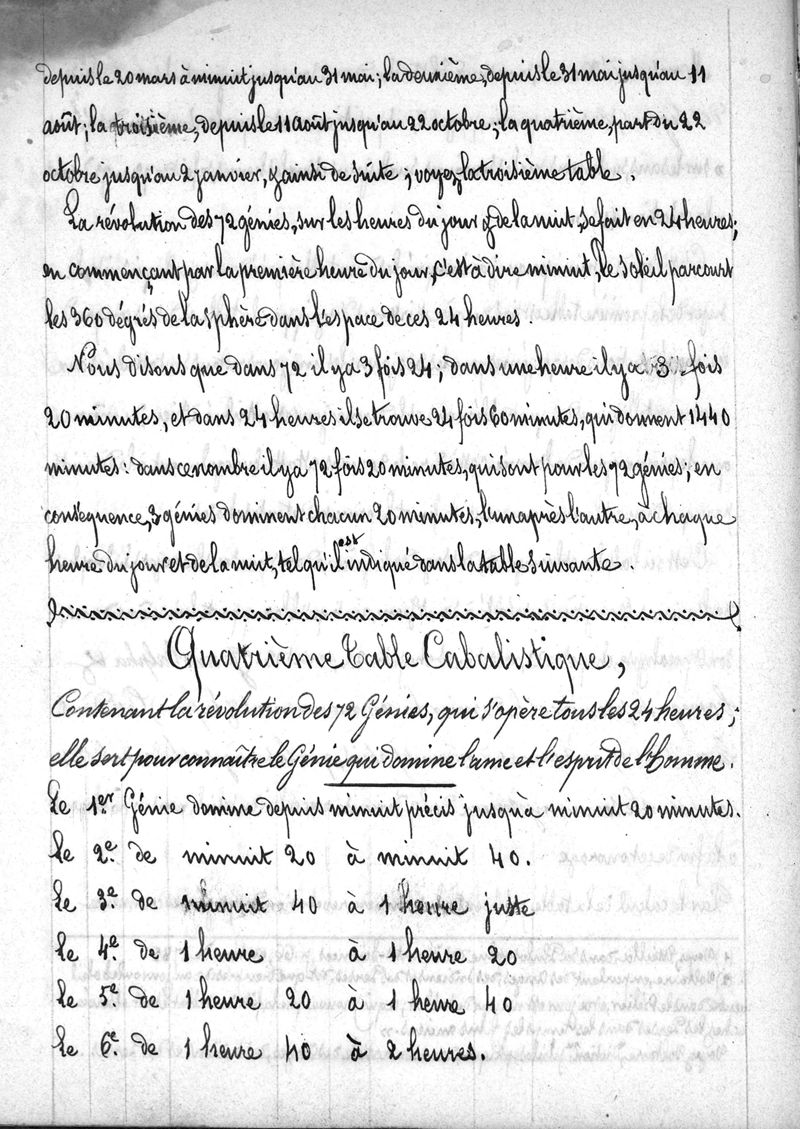 depuis le 20 mars à minuit jusqu'au 31 mai; la deuxième, depuis le 31 mai jusqu'au 11
août; la troisième, depuis le 11 août jusqu'au 22 octobre; la quatrième, part du 22
octobre jusqu'au 2 janvier, & ainsi de suite; voyez, la troisième table.
La révolution des 72 génies, sur les heures du jour & de la nuit, se fait en 24 heures;
en commençant par la première heure du jour, c'est à dire minuit, le soleil parcourt
les 360 dégrés de la sphère dans l'espace de ces 24 heures.
Nous disons que dans 72 il y a 3 fois 24; dans une heure il y a 3 fois
20 minutes, et dans 24 heures il se trouve 24 fois 60 minutes, qui donnent 1440
minutes: dans ce nombre il y a 72 fois 20 minutes, qui sont pour les 72 génies; en
conséquence, 3 génies dominent chacun 20 minutes, l'un après l'autre, à chaque
heure du jour et de la nuit, tel qu'il est indiqué dans la table suivante.
Quatrième Table Cabalistique,
Contenant la révolution des 72 Génies, qui s'opère tous les 24 heures;
elle sert pour connaître le Génie qui domine l'ame et l'esprit de l'homme.
Le 1er Génie domine depuis minuit précis jusqu'à minuit 20 minutes.
Le 2e. de minuit 20 à minuit 40.
Le 3e. de minuit 40 à 1 heure juste
Le 4e. de 1 heure à 1 heure 20
Le 5e. de 1 heure 20 à 1 heure 40
Le 6e. de 1 heure 40 à 2 heures.